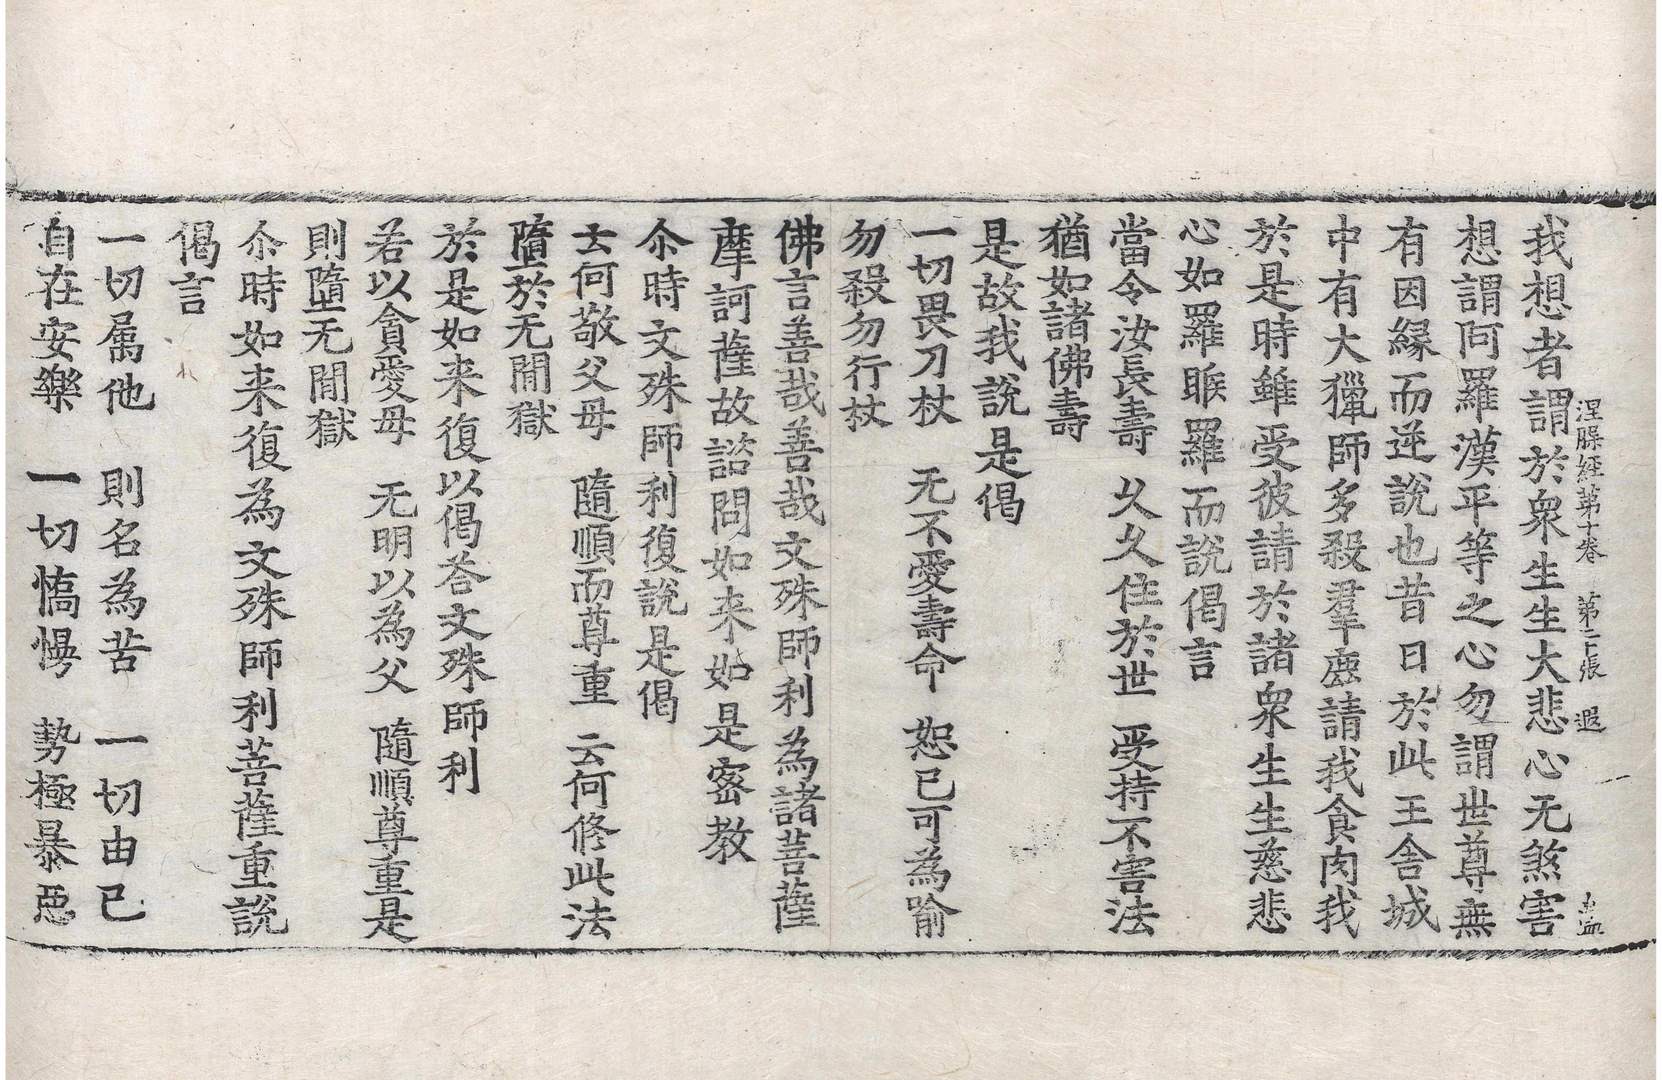 涅槃經第十卷 第二十張 遐
我想者謂於衆生生大悲心无煞害
想謂阿羅漢平等之心勿謂世尊無
有因縁而逆說也昔日於此王舎城
中有大獵師多殺羣鹿請我食肉我
於是時雖受彼請於諸衆生生慈悲
心如羅睺羅而說偈言
當令汝長壽 久久住於世 受持不害法
猶如諸佛壽
是故我說是偈
一切畏刀杖 无不愛壽命 恕己可為喻
勿殺勿行杖
佛言善哉善哉文殊師利為諸菩薩
摩訶薩故諮問如来如是密教
尒時文殊師利復說是偈
云何敬父母 隨順而尊重 云何修此法
墮於无閒獄
於是如来復以偈荅文殊師利
若以貪愛母 无明以為父 隨順尊重是
則墮无閒獄
尒時如来復為文殊師利菩薩重說
偈言
一切属他 則名為苦 一切由己
自在安樂 一切憍慢 勢極暴惡